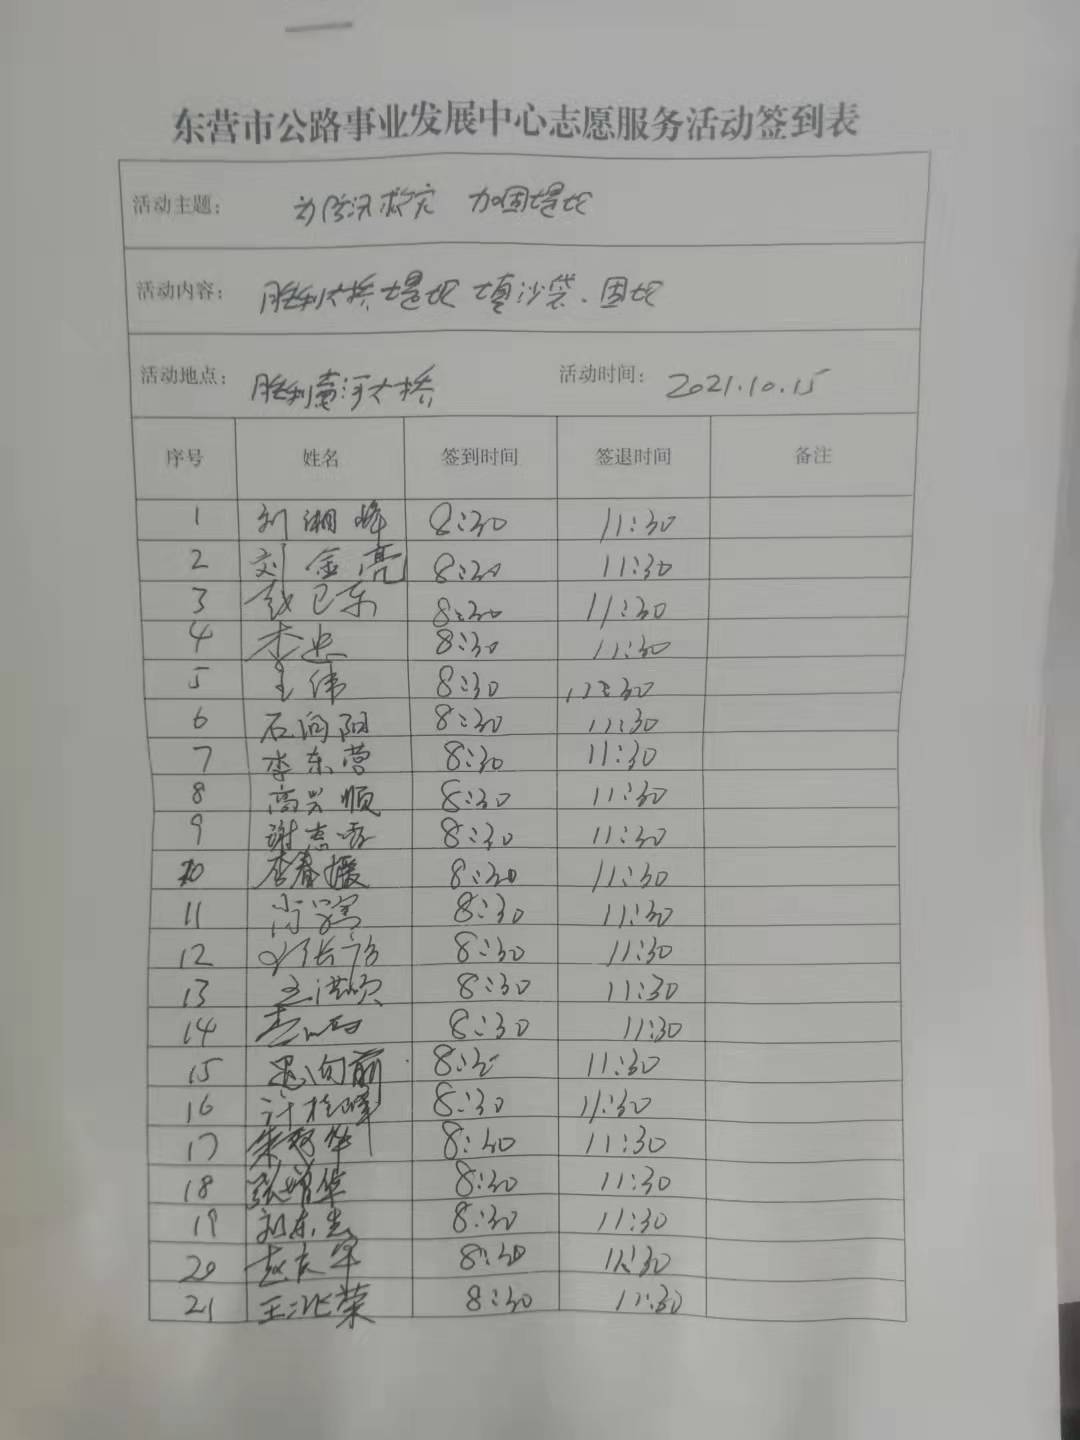 东营市公路事业发展中心志愿服务活动签到表
活动主题： 为防汛救灾 加固堤坝
活动内容： 胜利大桥堤坝填沙袋、固坝
活动地点： 胜利黄河大桥 活动时间： 2021.10.15
序号 姓名 签到时间 签退时间 备注
1 刘湘峰 8:30 11:30
2 刘金亮 8:30 11:30
3 8:30 11:30
4 李忠 8:30 11:30
5 王伟 8:30 11:30
6 石向阳 8:30 11:30
7 李东营 8:30 11:30
8 高兴顺 8:30 11:30
9 谢志 8:30 11:30
10 李春媛 8:30 11:30
11 8:30 11:30
12 8:30 11:30
13 王洪顺 8:30 11:30
14 8:30 11:30
15 向前 8:30 11:30
16 许 峰 8:30 11:30
17 朱 华 8:30 11:30
18 张增华 8:30 11:30
19 刘东 8:30 11:30
20 赵 军 8:30 11:30
21 王 荣 8:30 11:30